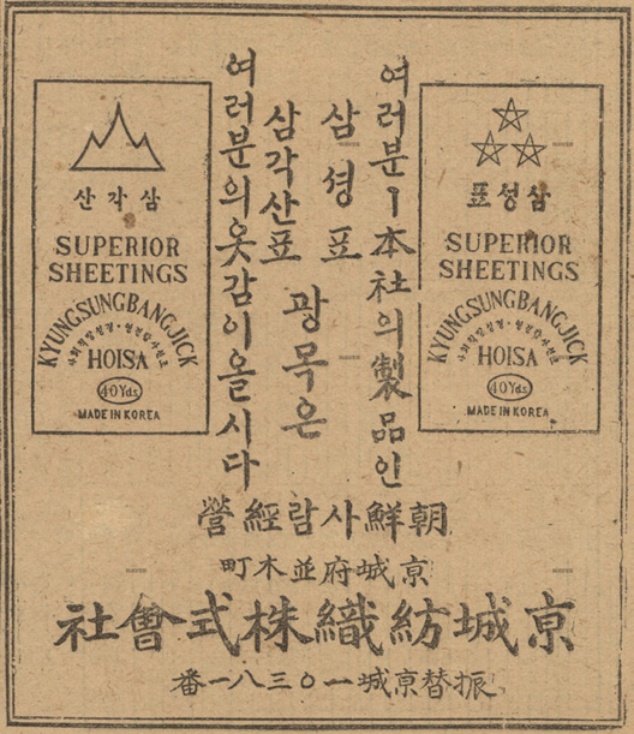 삼성표
SUPERIOR
SHEETINGS
KYUNGSUNGBANGJICK
HOISA
40Yds
MADE IN KOREA
여러분ㅣ本社의製品인
삼셩표
삼각산표
광목은
여러분의옷감이올시다
삼각산
SUPERIOR
SHEETINGS
KYUNGSUNGBANGJICK
HOISA
40Yds
MADE IN KOREA
朝鮮사람經營
亰城府並木町
亰城紡織株式會社
振替亰城一〇三八一番